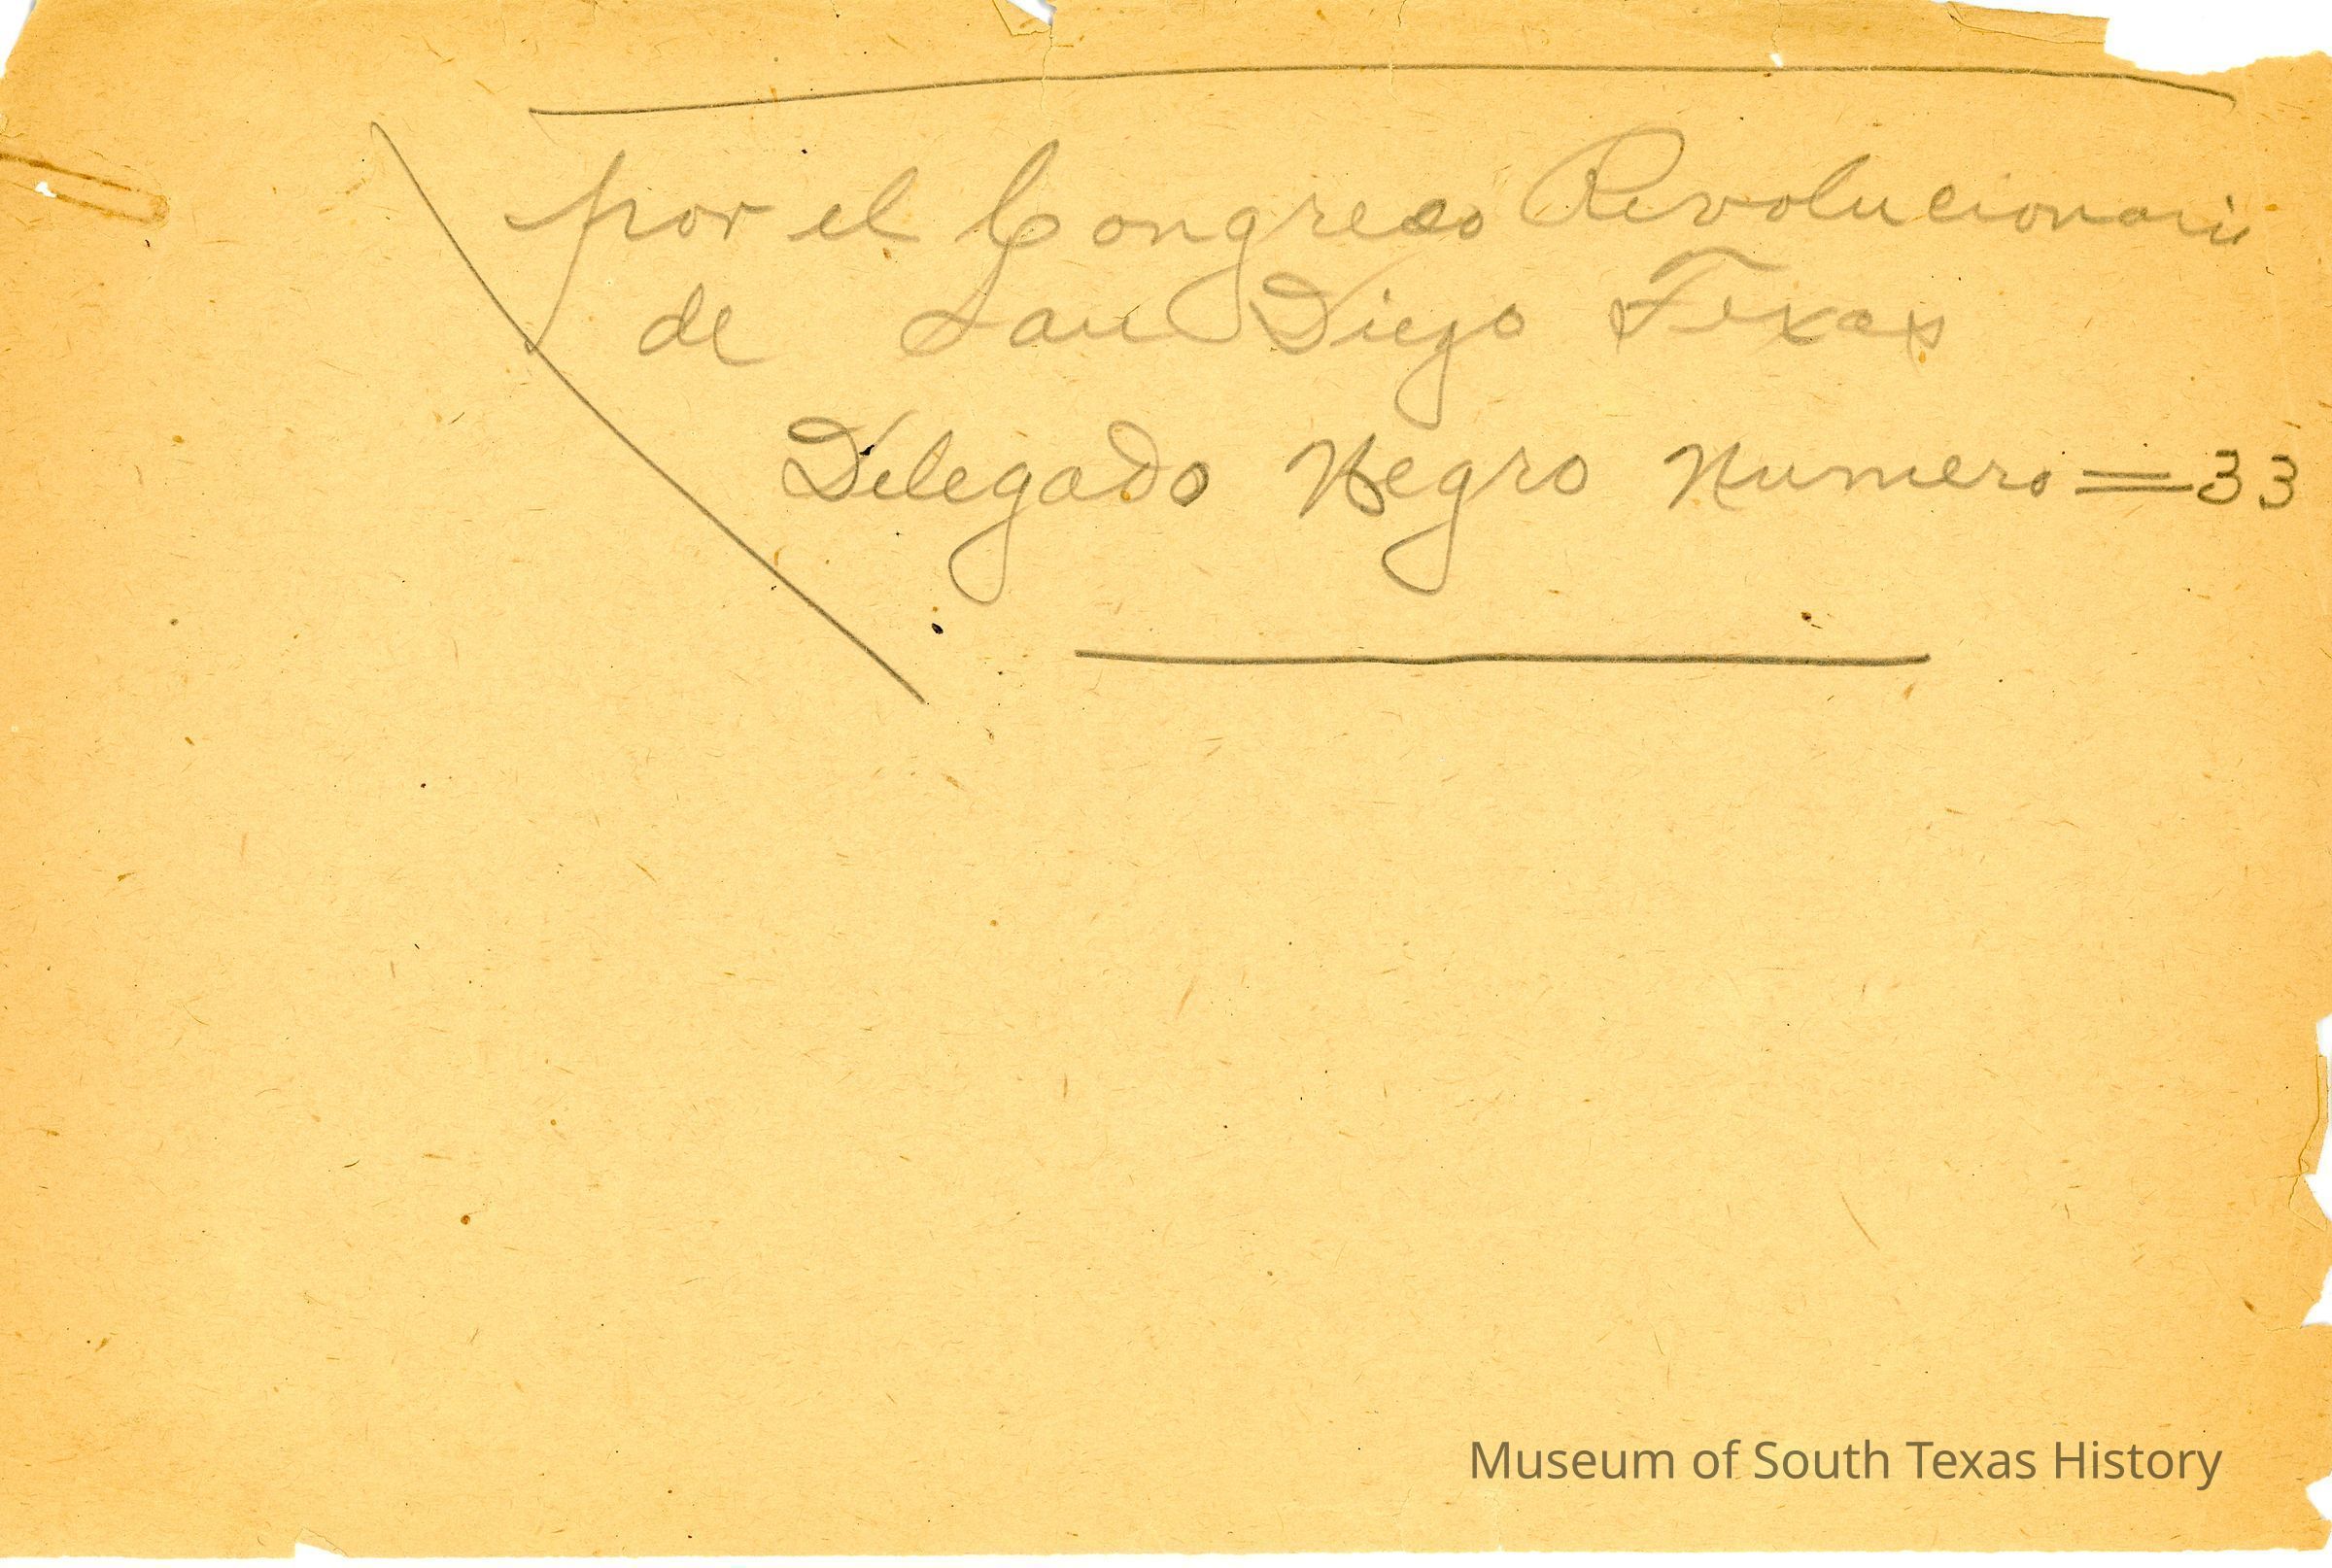 por el Congreso Revolucionario
de San Diego Texas
Delegado Negro Numero = 33
Museum of South Texas History